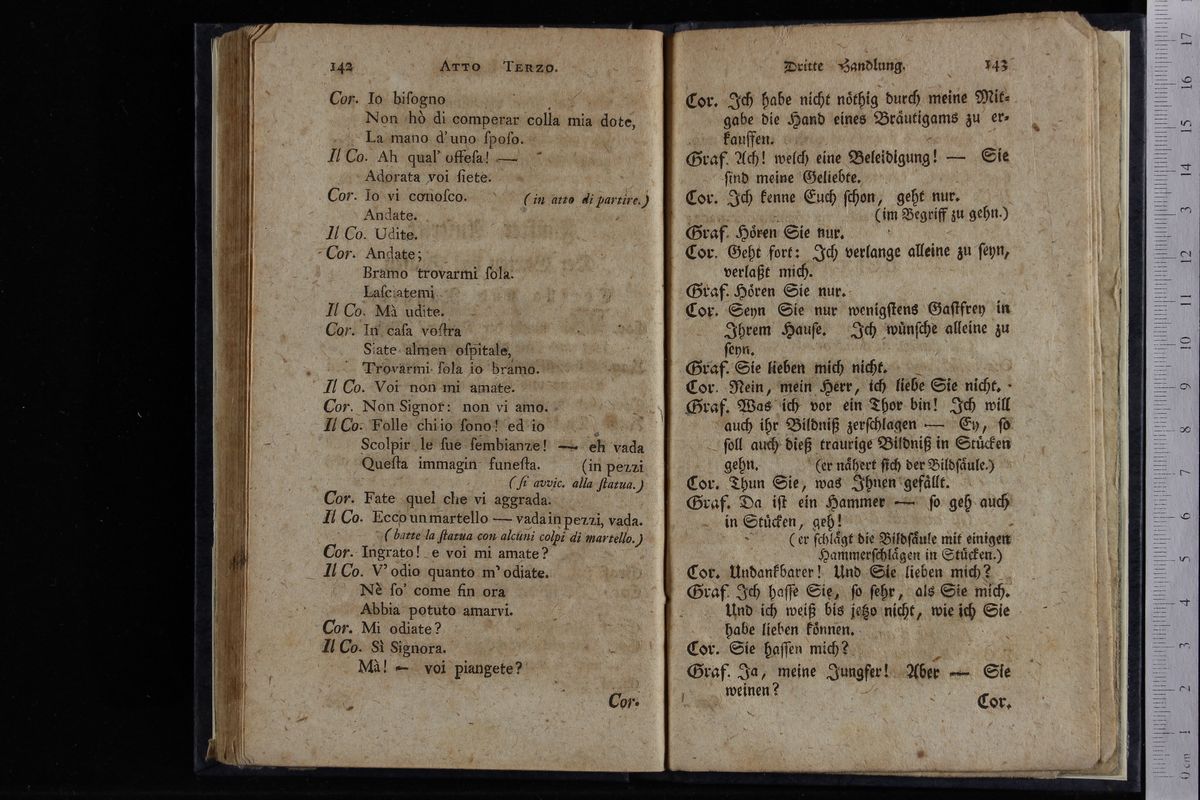 142 ATTO TERZO.
Cor. Io biſogno
Non hò di comperar colla mia dote,
La mano d'uno ſpoſo.
Il Co. Ah qual' offeſa! —
Adorata voi ſiete.
Cor. Io vi conoſco. (in atto di partire.)
Andate.
Il Co. Udite.
Cor. Andate;
Bramo trovarmi ſola.
Laſciatemi
Il Co. Mà udite.
Cor. In caſa voſtra
Siate almen oſpitale,
Trovarmi ſola io bramo.
Il Co. Voi non mi amate.
Cor. Non Signor: non vi amo.
Il Co. Folle chi io ſono! ed io
Scolpir le ſue ſembianze! — eh vada
Queſta immagin funeſta. (in pezzi
(ſi avvic. alla ſtatua.)
Cor. Fate quel che vi aggrada.
Il Co. Ecco un martello — vada in pezzi, vada.
(batte la ſtatua con alcuni colpi di martello.)
Cor. Ingrato! e voi mi amate?
Il Co. V' odio quanto m' odiate.
Nè ſo' come fin ora
Abbia potuto amarvi.
Cor. Mi odiate?
Il Co. Sì Signora.
Mà! — voi piangete?
Cor.
Dritte Handlung. 143
Cor. Ich habe nicht nöthig durch meine Mit-
gabe die Hand eines Bräutigams zu er-
kauffen.
Graf. Ach! welch eine Beleidigung! — Sie
ſind meine Geliebte.
Cor. Ich kenne Euch ſchon, geht nur.
(im Begriff zu gehn.)
Graf. Hören Sie nur.
Cor. Geht fort: Ich verlange alleine zu ſeyn,
verlaßt mich.
Graf. Hören Sie nur.
Cor. Seyn Sie nur wenigſtens Gaſtfrey in
Ihrem Hauſe. Ich wünſche alleine zu
ſeyn.
Graf. Sie lieben mich nicht.
Cor. Nein, mein Herr, ich liebe Sie nicht.
Graf. Was ich vor ein Thor bin! Ich will
auch ihr Bildniß zerſchlagen — Ey, ſo
ſoll auch dieß traurige Bildniß in Stücken
gehn. (er nähert ſich der Bildſäule.)
Cor. Thun Sie, was Ihnen gefällt.
Graf. Da iſt ein Hammer — ſo geh auch
in Stücken, geh!
(er ſchlägt die Bildſäule mit einigen
Hammerſchlägen in Stücken.)
Cor. Undankbarer! Und Sie lieben mich?
Graf. Ich haſſe Sie, ſo ſehr, als Sie mich.
Und ich weiß bis jetzo nicht, wie ich Sie
habe lieben können.
Cor. Sie haſſen mich?
Graf. Ja, meine Jungfer! Aber — Sie
weinen?
Cor.
0 cm 1 2 3 4 5 6 7 8 9 10 11 12 13 14 15 16 17